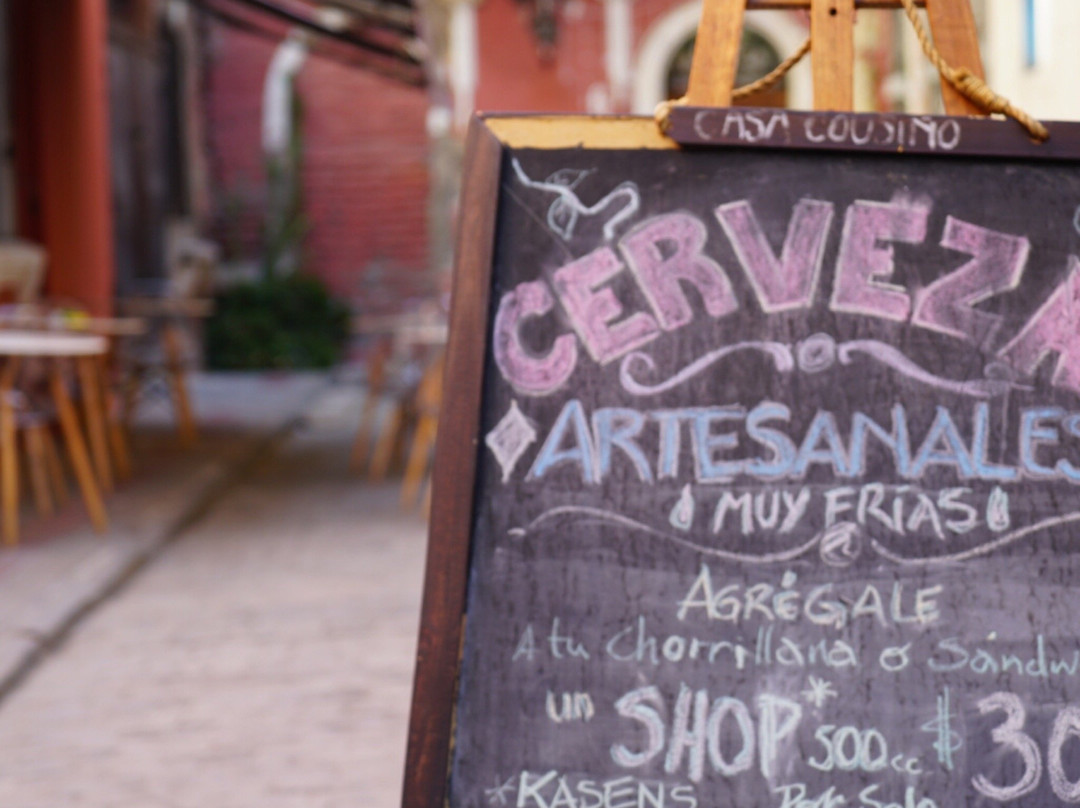 CASA COUSIÑO
CERVEZA
ARTESANALES
MUY FRÍAS
AGRÉGALE
A tu Chorrillana o Sándw
un SHOP* 500cc $ 30
*KASENS